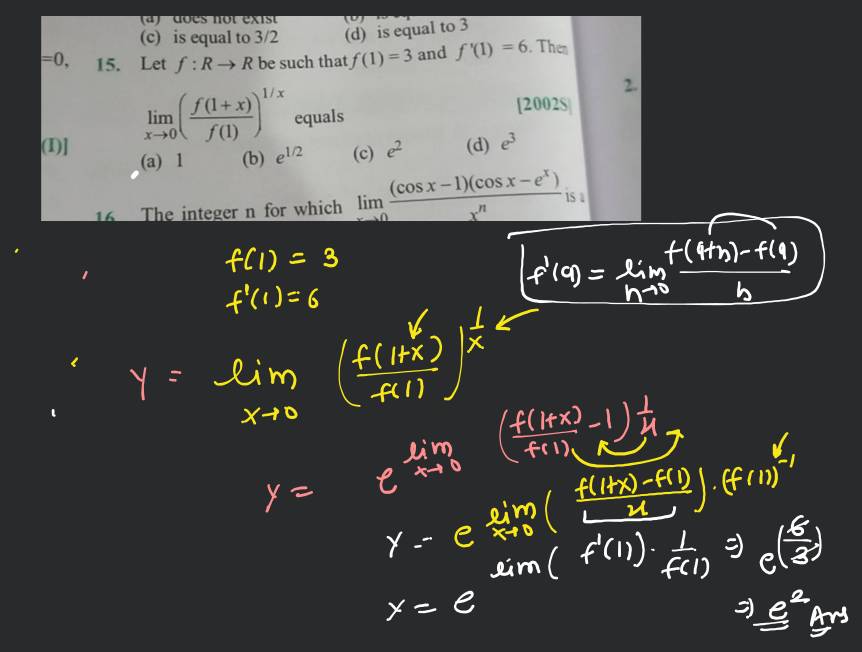 (a) does not exist
(c) is equal to 3/2 (d) is equal to 3
=0, 15. Let f : R → R be such that f(1) = 3 and f '(1) = 6. Then
lim x→0 ( f(1+x) / f(1) )^1/x equals [2002S]
(I)] (a) 1 (b) e^1/2 (c) e^2 (d) e^3
2.
16. The integer n for which lim x→0 (cos x – 1)(cos x – e^x) / x^n is a
f(1) = 3
f'(1) = 6
f'(a) = lim h→0 f(a+h)-f(a) / h
y = lim x→0 ( f(1+x) / f(1) )^1/x
y = e^lim x→0 ( f(1+x) / f(1) - 1 ) 1/x
y = e^lim x→0 ( f(1+x)-f(1) / x ) . (f(1))^-1
y = e^lim ( f'(1) ) . 1/f(1) ⇒ e^(6/3)
⇒ e^2 Ans